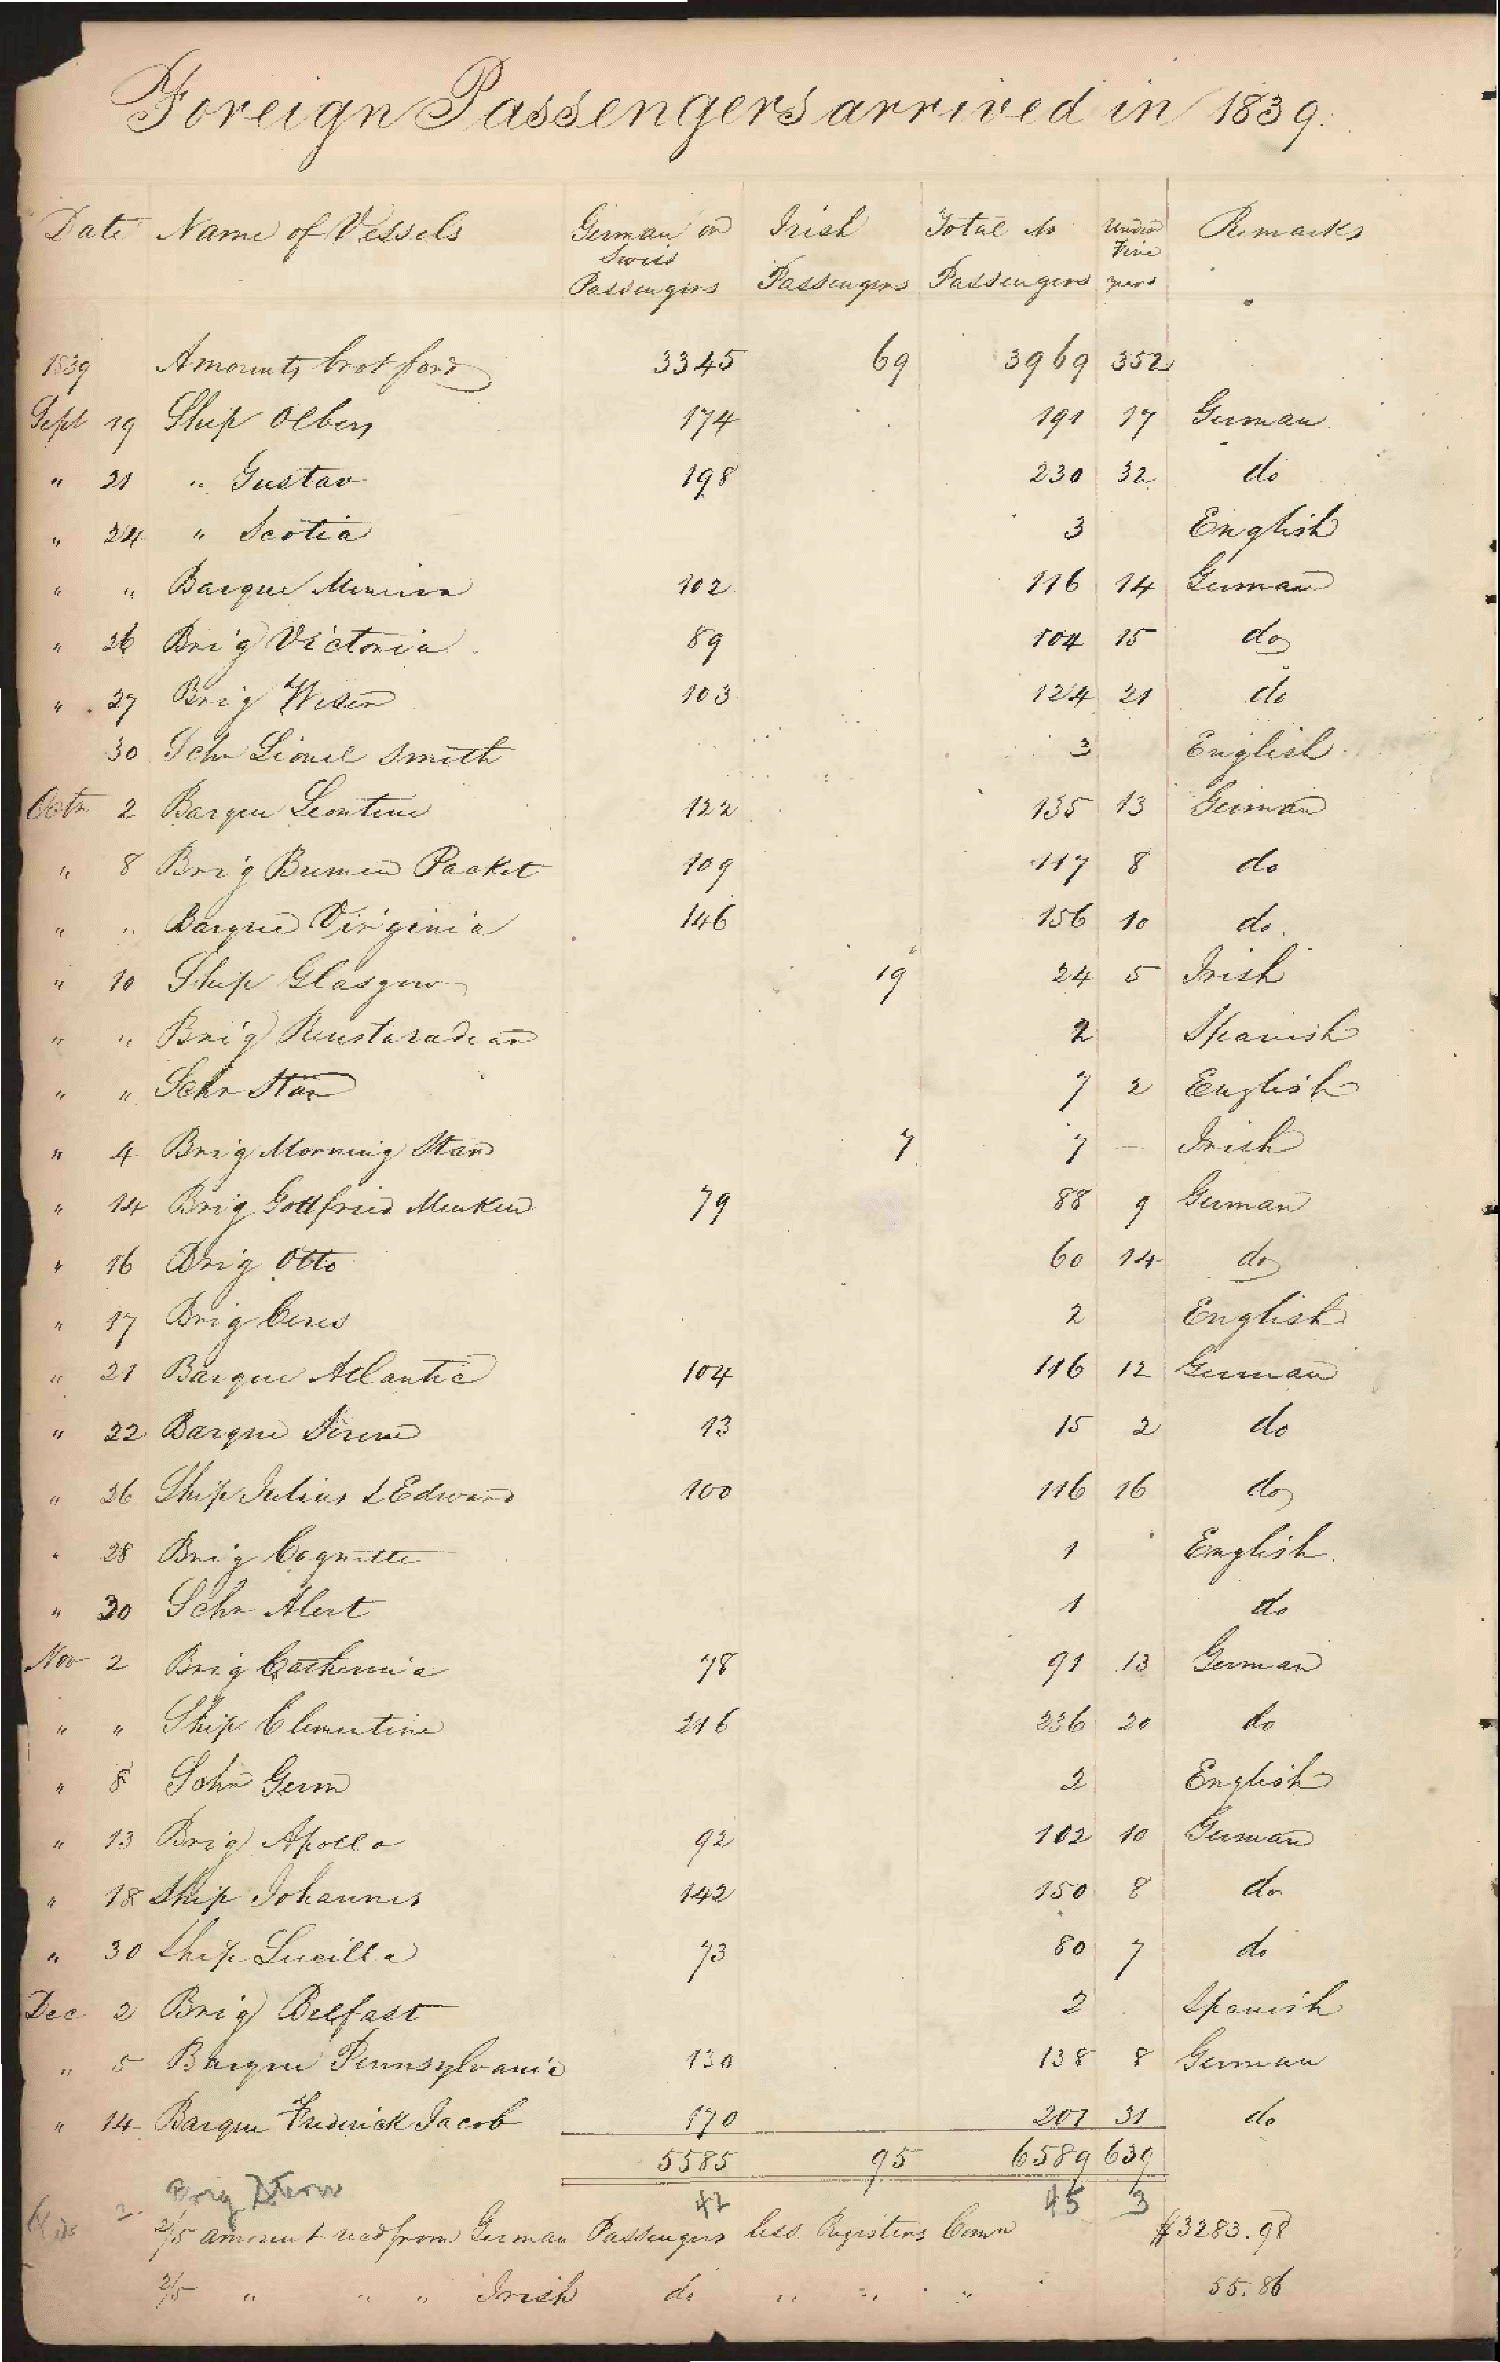 Foreign Passengers arrived in 1839.
Date Name of Vessels German or Swiss Passengers Irish Passengers Total No Passengers Under Five years Remarks
1839 Amounts brot ford 3345 69 3969 352
Sept 19 Ship Olbers 174 191 17 German
" 21 " Gustav 198 230 32 do
" 24 " Scotia 3 English
" " Barque 102 116 14 German
" 26 Brig Victoria 89 104 15 do
" 27 Brig Weser 103 124 21 do
30 Schr Lionel Smith 3 English
Octr 2 Barque Leontine 122 135 13 German
" 8 Brig Bremen Packet 109 117 8 do
" " Barque Virginia 146 156 10 do
" 10 Ship Glasgow 19 24 5 Irish
" " Brig 2 Spanish
" " Schr Star 7 2 English
" 4 Brig Morning Star 7 7 — Irish
" 14 Brig Gottfried Menken 79 88 9 German
" 16 Brig Otto 60 14 do
" 17 Brig Ceres 2 English
" 21 Barque Atlantic 104 116 12 German
" 22 Barque 13 15 2 do
" 26 Ship Julius & Edward 100 116 16 do
" 28 Brig Coquette 1 English
" 30 Schr Alert 1 do
Nov 2 Brig 78 91 13 German
" " Ship Clementine 216 236 20 do
" 8 Schr Germ 2 English
" 13 Brig Apollo 92 102 10 German
" 18 Ship Johannes 142 150 8 do
" 30 Ship Lucilla 73 80 7 do
Dec 2 Brig Belfast 2 Spanish
" 5 Barque Pennsylvania 130 138 8 German
" 14 Barque Frederick Jacob 170 201 31 do
5585 95 6589 639
2 Brig 42 45 3
2/5 amount recd from German Passengers less Registers Comn $3283.98
2/5 " " " Irish do " " " 55.86